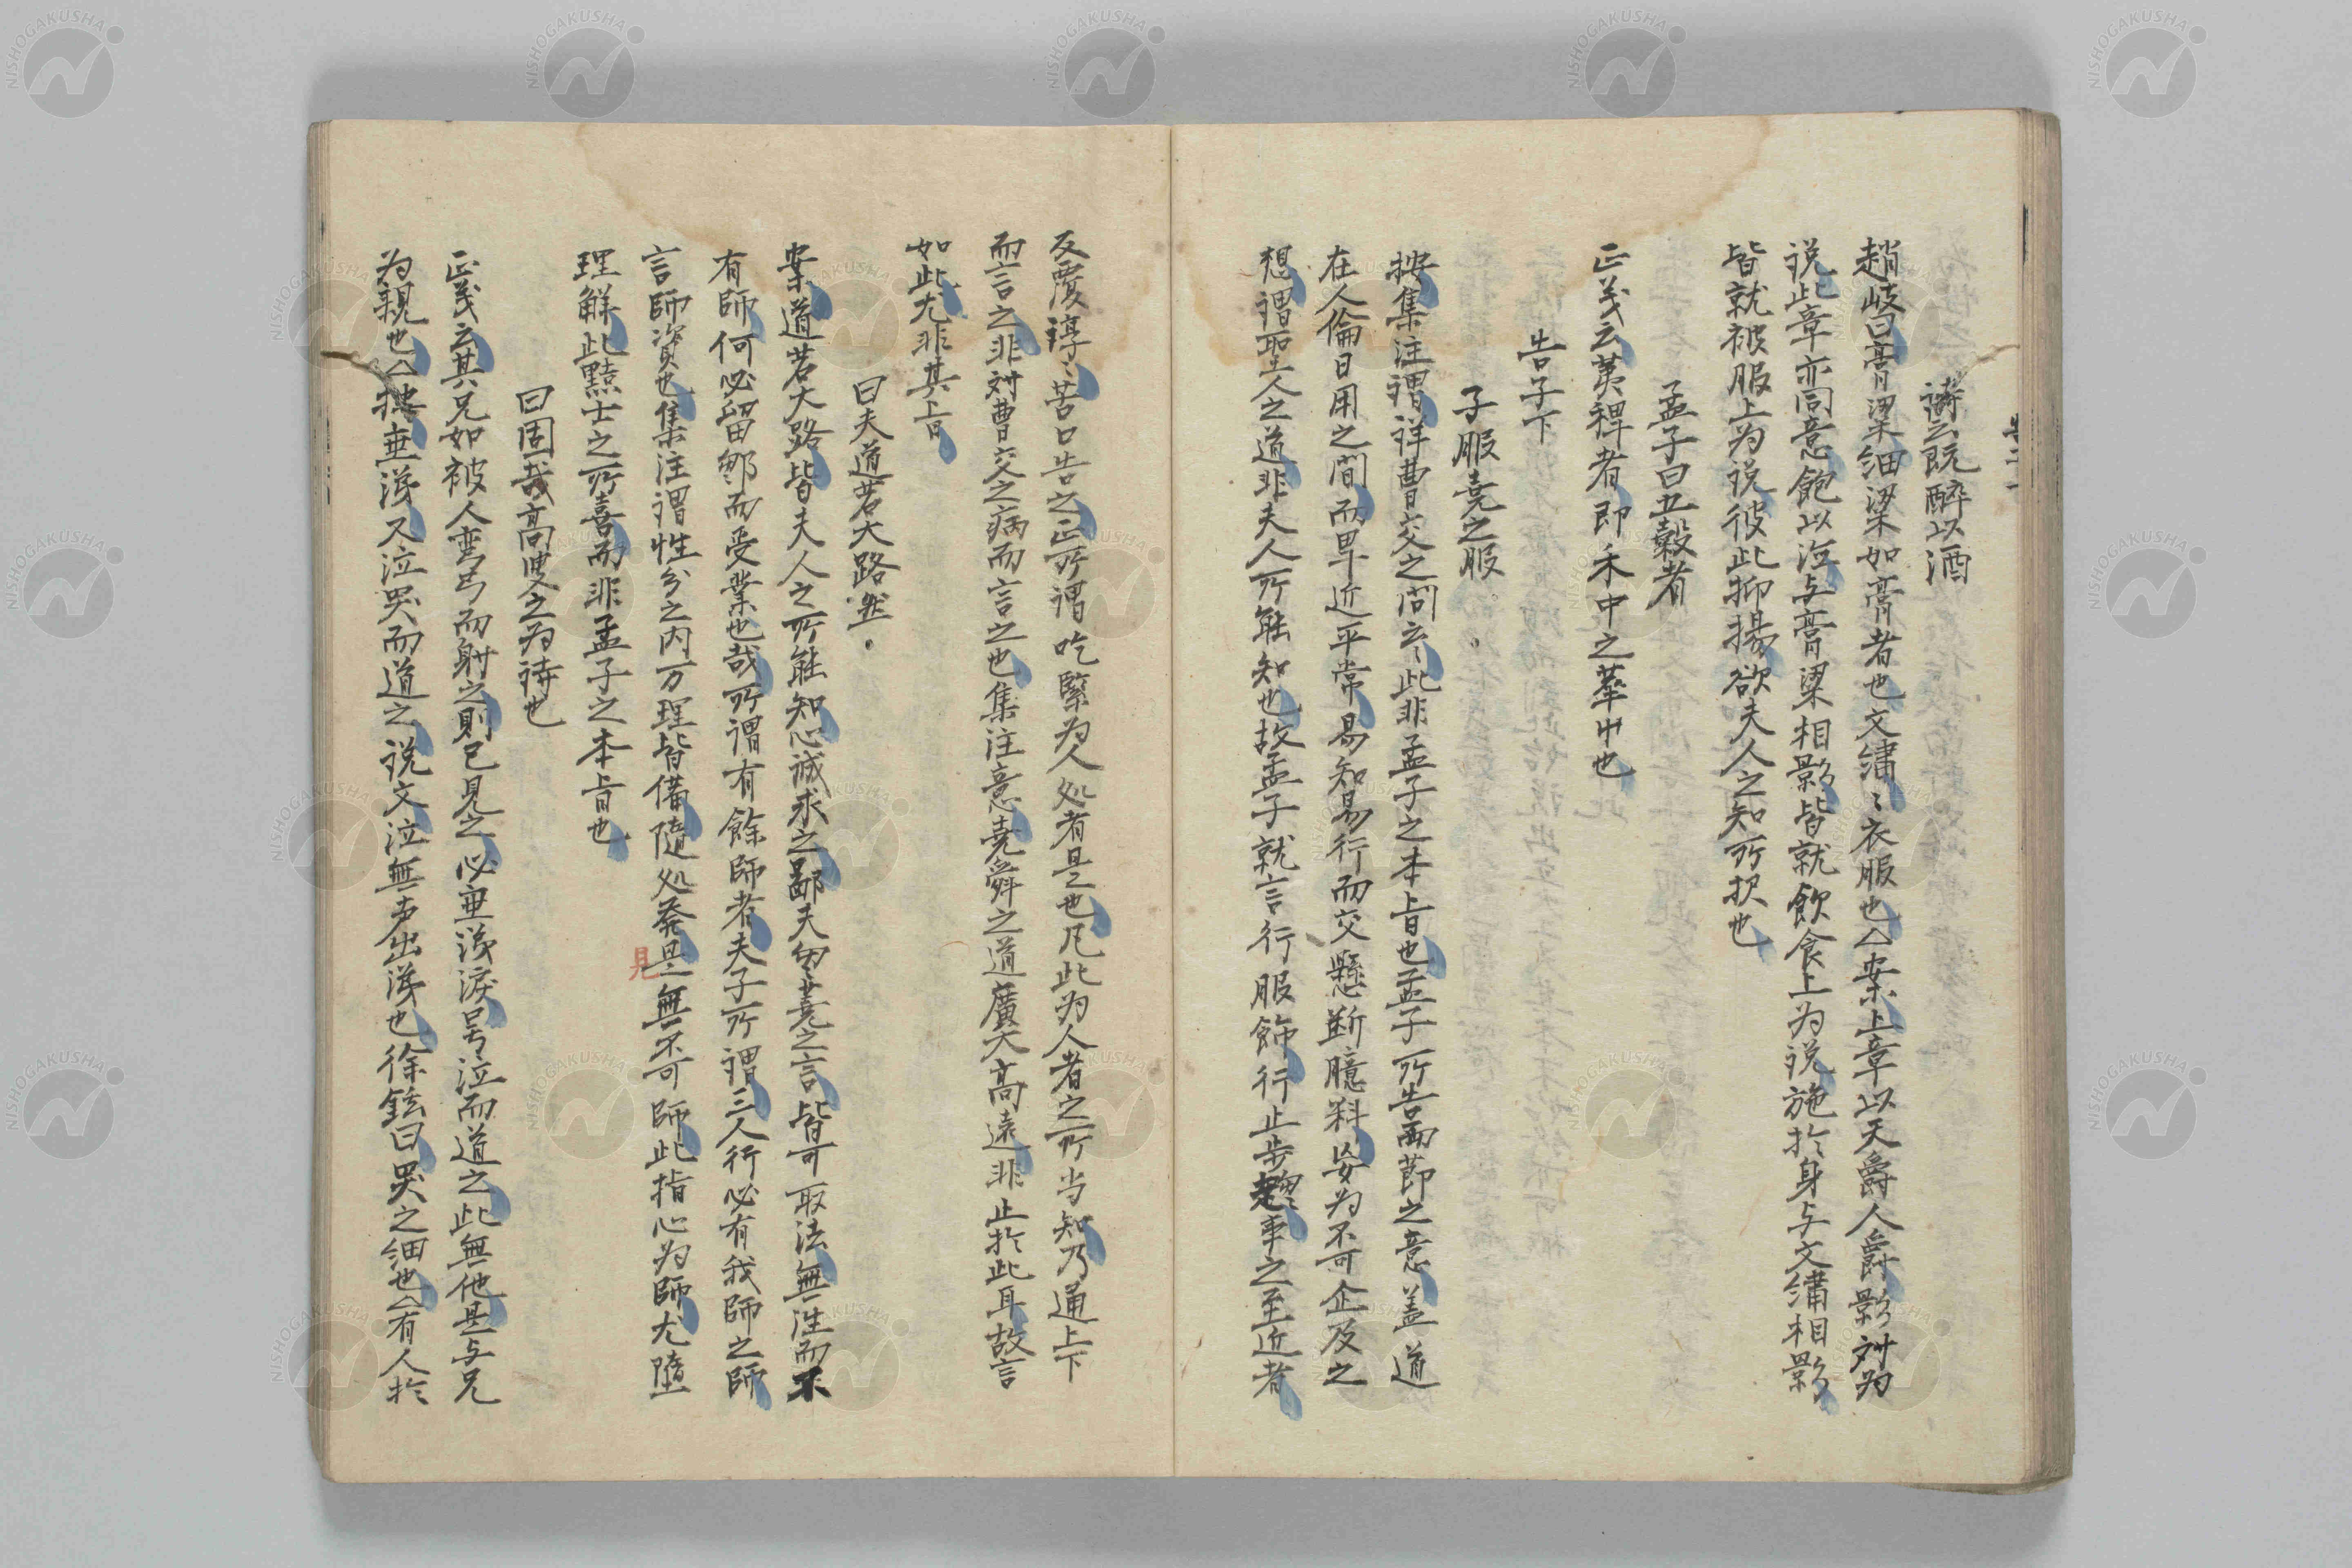 詩云既醉以酒
趙岐曰膏粱細粱如膏者也文繡〻衣服也△案上章以天爵人爵影対為
説此章亦同意飽以泣与膏粱相影皆就飲食上为説施於身与文繡相影
皆就被服上为説彼此抑揚欲夫人之知所択也
孟子曰五穀者
正義云荑稗者即禾中之莘屮也
告子下
子服堯之服
按集注謂詳曹交之問云〻此非孟子之本旨也孟子所告両節之意盖道
在人倫日用之間而卑近平常易知易行而交懸断臆料妄为不可企及之
想謂聖人之道非夫人所能知也故孟子就言行服飾行止歩趨事之至近者
反覆諄〻苦口告之正所謂吃緊为人処者是也凡此为人者之所当知乃通上下
而言之非対曹交之病而言之也集注意堯舜之道廣大高遠非止於此耳故言
如此尤非其旨
曰夫道若大路然
案道若大路皆夫人之所能知心誠求之鄙夫匆〻蕘之言皆可取法無淮而不
有師何必留鄒而受業也哉所謂有餘師者夫子所謂三人行必有我師之師
言師資也集注謂性分之内万理皆備随処発是無不可師此指心为師尤墮
見
理解此黠士之所喜而非孟子之本旨也
曰固哉高叟之为詩也
正義云其兄如被人弯弓而射之則已見之必垂涕涙号泣而道之此無他是与兄
为親也△按垂涕又泣哭而道之説文泣無声出涕也徐鉉曰哭之細也△有人於